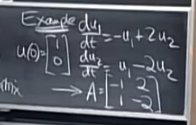 Example du₁/dt = -u₁ + 2u₂
u(0) = [1 0] du₂/dt = u₁ - 2u₂
→ A = [-1 2
1 -2]